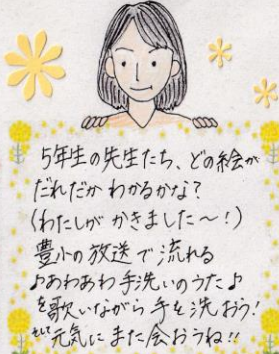 5年生の先生たち、どの絵が
だれだか わかるかな?
(わたしが かきました〜!)
豊小の放送で流れる
♪あわあわ手洗いのうた♪
を歌いながら 手を洗おう!
そして元気に また会おうね!!